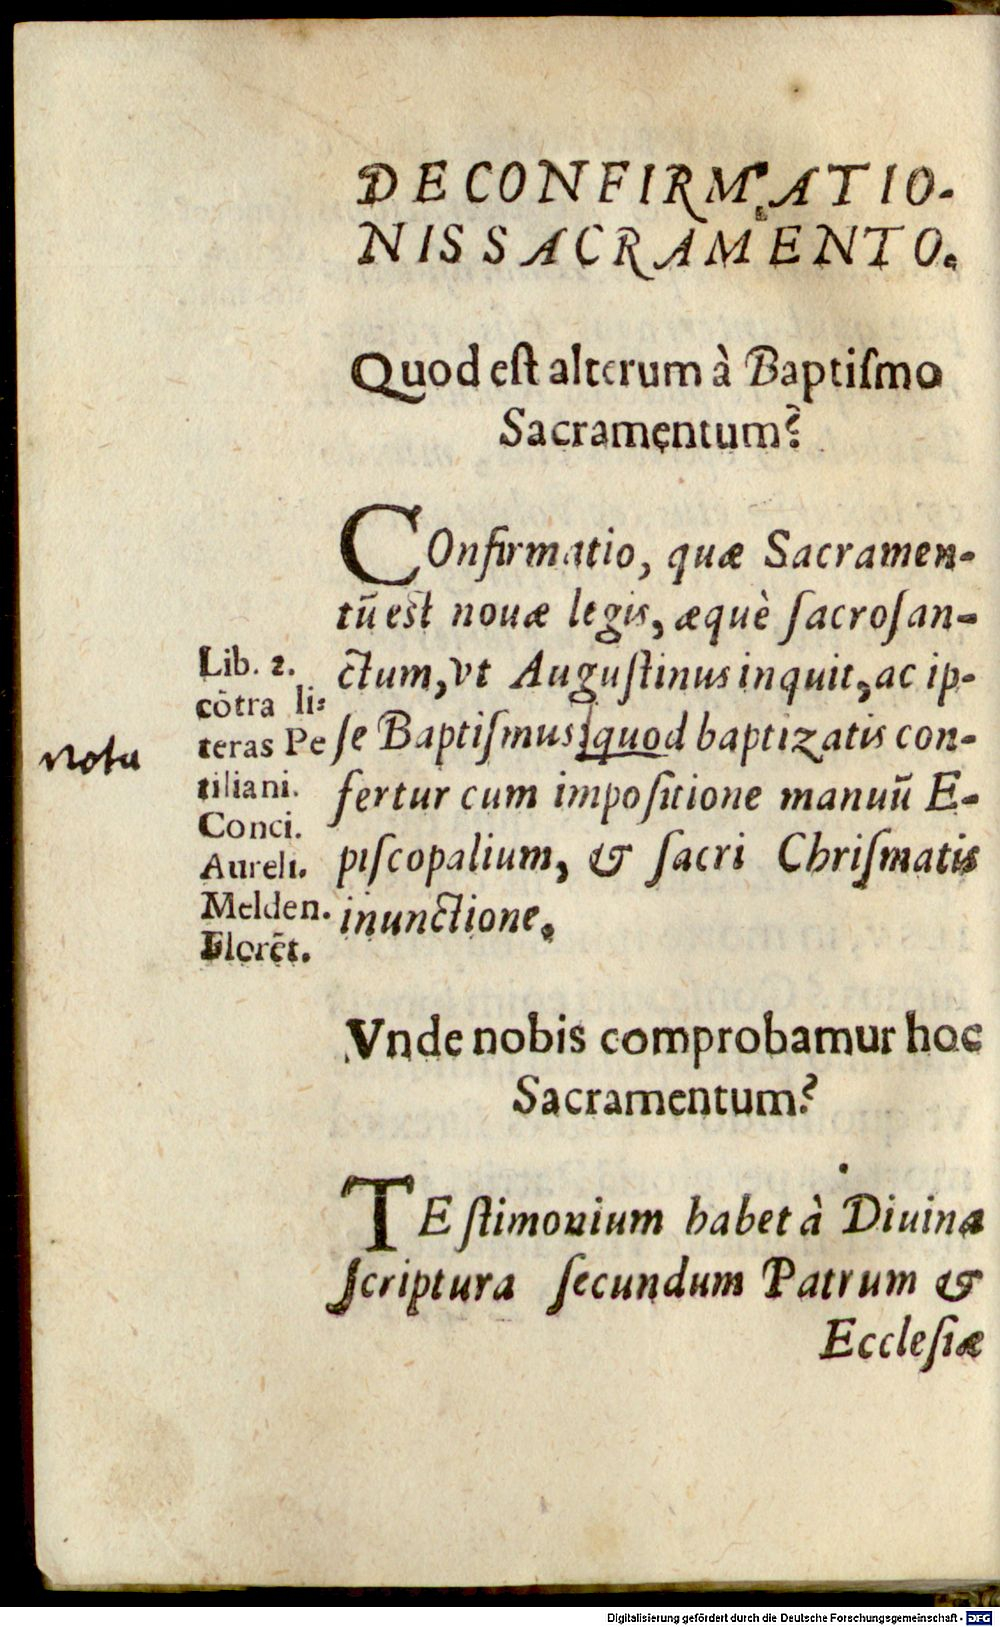 DE CONFIRMATIO-
NIS SACRAMENTO.
Quod est alterum à Baptiſmo
Sacramentum?
COnfirmatio, quæ Sacramen-
tū est nouæ legis, æquè ſacroſan-
ctum, vt Auguſtinus inquit, ac ip-
ſe Baptiſmus, quod baptizatis con-
fertur cum impoſitione manuū E-
piſcopalium, & ſacri Chriſmatis
inunctione.
Lib. 2.
cōtra li-
teras Pe
tiliani.
Conci.
Aureli.
Melden.
Florēt.
Nota
Vnde nobis comprobamur hoc
Sacramentum?
TEſtimonium habet à Diuina
ſcriptura ſecundum Patrum &
Eccleſiæ
Digitalisierung gefördert durch die Deutsche Forschungsgemeinschaft - DFG